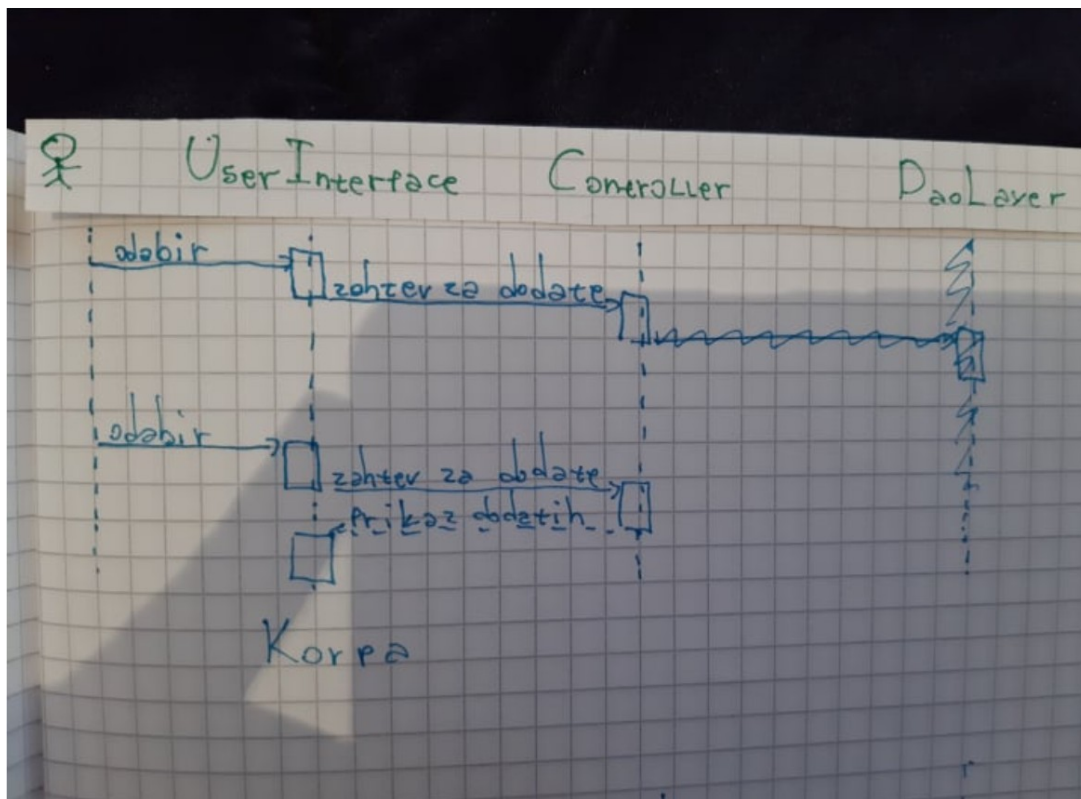 UserInterface Conroller DaoLayer
odabir
zahtev za dodate
odabir
zahtev za dodate
Prikaz dodatih
Korpa